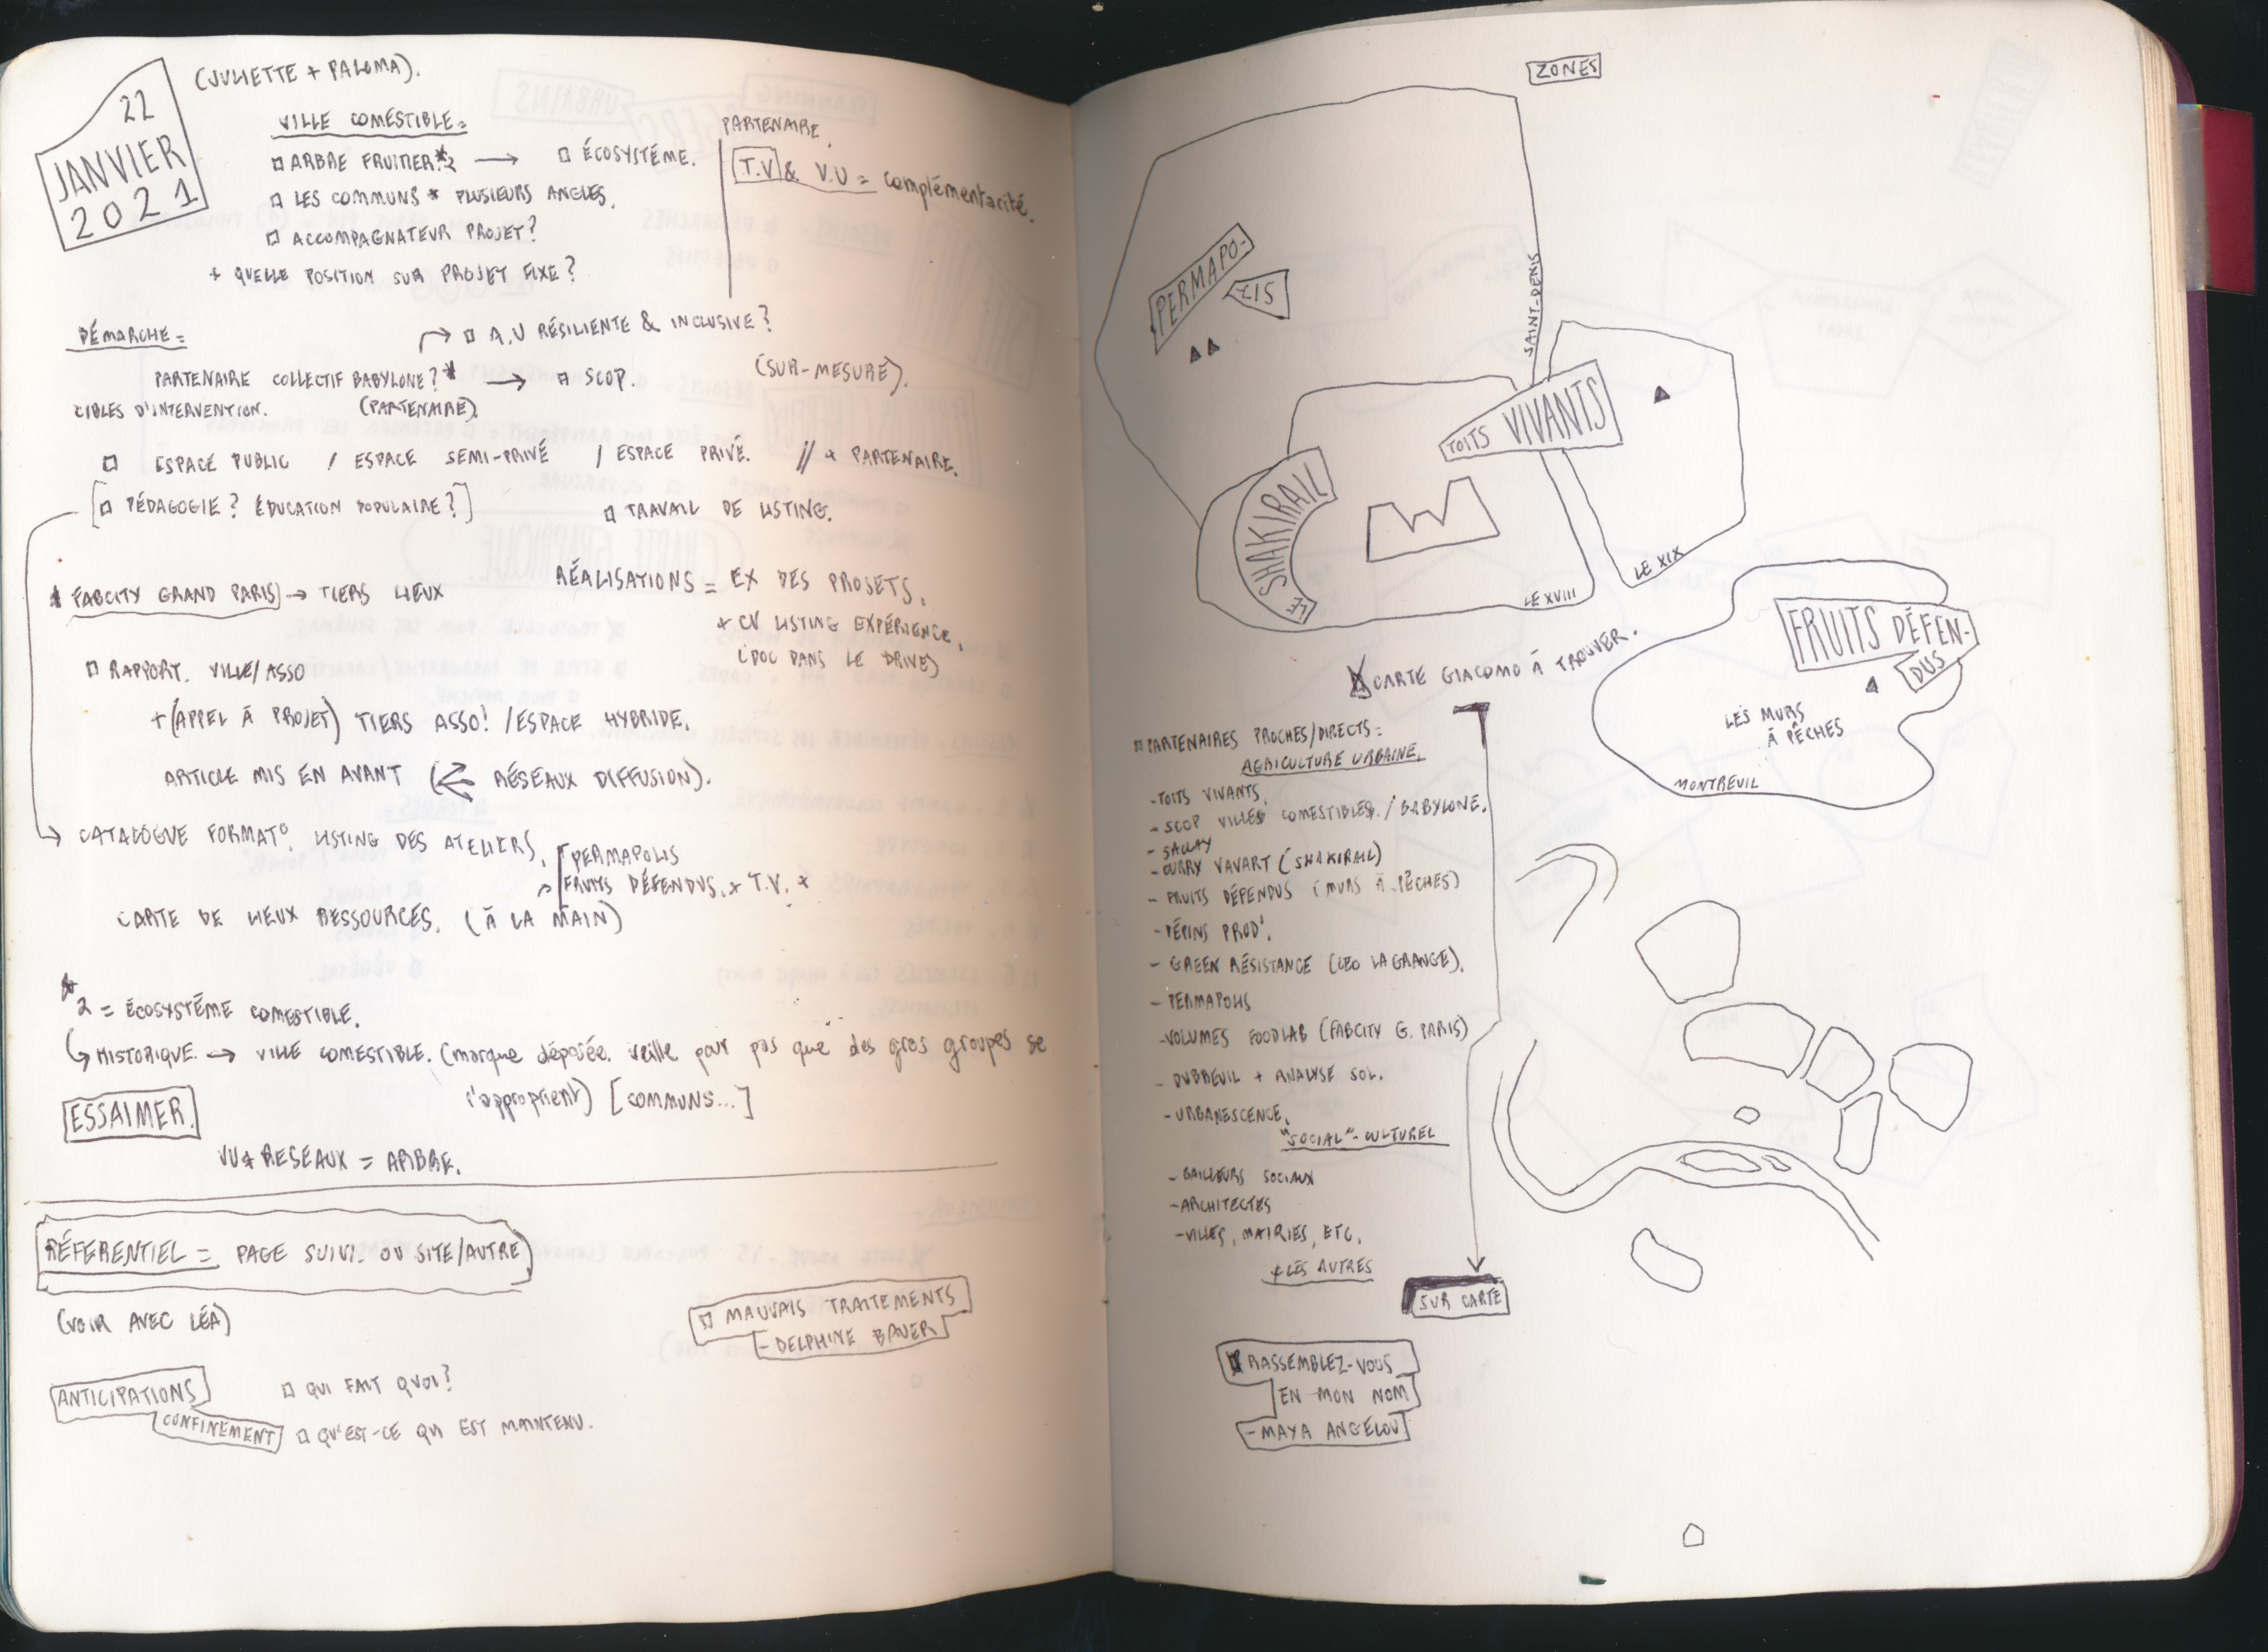 22
JANVIER
2021
(JULIETTE + PALOMA).
VILLE COMESTIBLE =
ARBRE FRUITIER *2 → ÉCOSYSTÉME.
LES COMMUNS * PLUSIEURS ANGLES.
ACCOMPAGNATEUR PROJET?
+ QUELLE POSITION SUR PROJET FIXE?
PARTENAIRE.
T.V & V.U = complémentarité.
DÉMARCHE =
A.U RÉSILIENTE & INCLUSIVE?
PARTENAIRE COLLECTIF BABYLONE? * → SCOP. (SUR-MESURE).
CIBLES D'INTERVENTION. (PARTENAIRE)
ESPACE PUBLIC / ESPACE SEMI-PRIVÉ / ESPACE PRIVÉ. // + PARTENAIRE.
[PÉDAGOGIE? ÉDUCATION POPULAIRE?]
TRAVAIL DE LISTING.
FABCITY GRAND PARIS → TIERS LIEUX
RÉALISATIONS = EX DES PROJETS.
+ CV LISTING EXPÉRIENCE.
(DOC DANS LE DRIVE)
RAPPORT. VILLE/ASSO
+ (APPEL À PROJET) TIERS ASSO! /ESPACE HYBRIDE.
ARTICLE MIS EN AVANT (RÉSEAUX DIFFUSION).
→ CATALOGUE FORMAT° LISTING DES ATELIERS.
PERMAPOLIS
FRUITS DÉFENDUS. + T.V. +
CARTE DE LIEUX RESSOURCES. (À LA MAIN)
*2 = ÉCOSYSTÉME COMESTIBLE.
↳ HISTORIQUE → VILLE COMESTIBLE. (marque déposée. veille pour pas que des gros groupes se
s'approprient) [COMMUNS...]
ESSAIMER.
VU + RESEAUX = ARBRE.
RÉFERENTIEL = PAGE SUIVI. OU SITE/AUTRE
(VOIR AVEC LÉA)
MAUVAIS TRAITEMENTS
- DELPHINE BAUER
ANTICIPATIONS
CONFINEMENT
QUI FAIT QUOI?
QU'EST-CE QUI EST MAINTENU.
ZONES
PERMAPO-
LIS
SAINT-DENIS
TOITS VIVANTS
LE SHAKIRAIL
LE XVIII
LE XIX
FRUITS DÉFEN-
DUS
LES MURS
À PÊCHES
MONTREUIL
CARTE GIACOMO À TROUVER.
PARTENAIRES PROCHES/DIRECTS =
AGRICULTURE URBAINE.
- TOITS VIVANTS.
- SCOP VILLES COMESTIBLES. / BABYLONE.
- SACLAY
- CURRY VAVART (SHAKIRAIL)
- FRUITS DÉFENDUS (MURS À PÊCHES)
- PÉPINS PROD'.
- GREEN RÉSISTANCE (LEO LAGRANGE).
- PERMAPOLIS
- VOLUMES FOODLAB (FABCITY G. PARIS)
- DUBREUIL + ANALYSE SOL.
- URBANESCENCE.
"SOCIAL"-CULTUREL
- BAILLEURS SOCIAUX
- ARCHITECTES
- VILLES, MAIRIES, ETC.
+ LES AUTRES
SUR CARTE
RASSEMBLEZ-VOUS
EN MON NOM
- MAYA ANGELOU